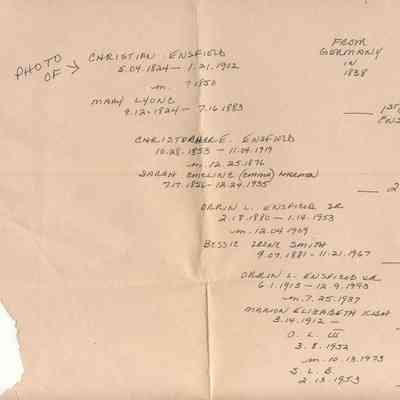 PHOTO
OF →
CHRISTIAN ENSFIELD
5.04.1824 — 1.21.1912
m. ? 1850
MARY LYONS
9.12.1824 — 7.16.1883
FROM
GERMANY
IN
1838
1ST
CHRISTOPHER E. ENSFIELD
10.28.1853 — 11.04.1919
m. 12.25.1876
SARAH EMELINE (EMMA)
7.17.1856 - 12.24.1935
2
ORRIN L. ENSFIELD SR
2.18.1880 — 1.14.1953
m. 12.04.1909
BESSIE IRENE SMITH
9.07.1881 - 11.21.1967
ORRIN L. ENSFIELD JR
6.1.1913 — 12.9.1993
m. 7.25.1937
MARION ELIZABETH KISH
3.14.1912 —
O. L. III
3.8.1952
m. 10.13.1973
S. L. B.
2.13.1953